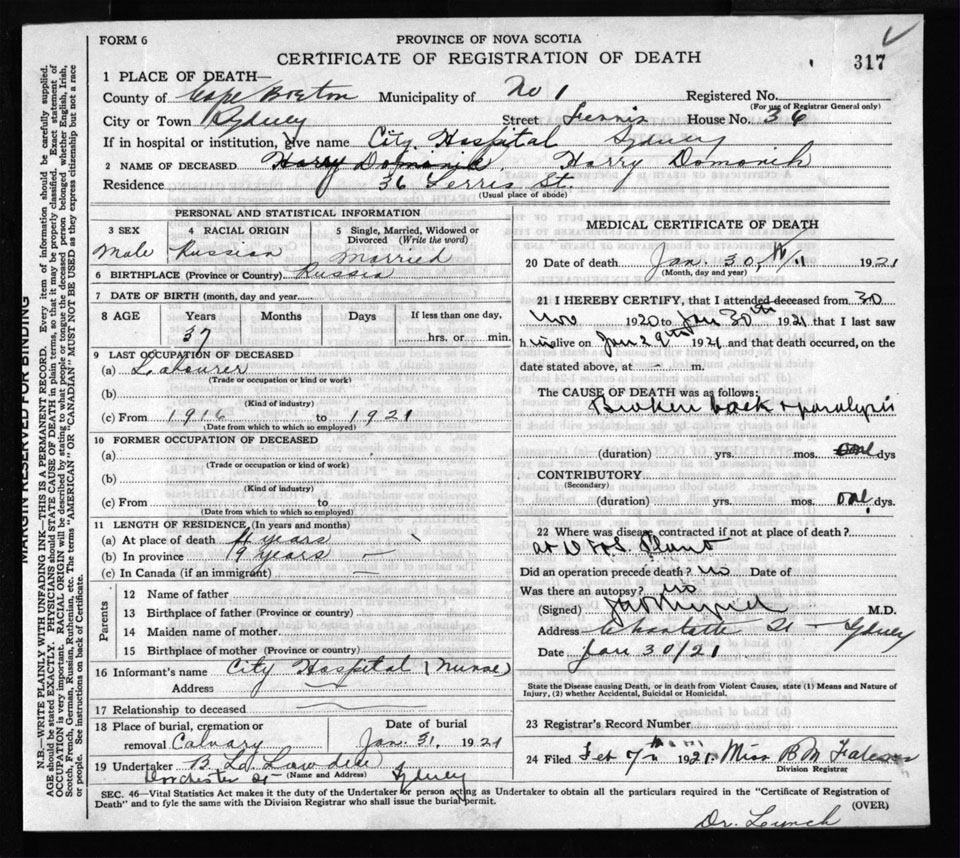 FORM 6
PROVINCE OF NOVA SCOTIA
CERTIFICATE OF REGISTRATION OF DEATH
317
1 PLACE OF DEATH—
County of Cape Breton Municipality of No 1 Registered No.
(For use of Registrar General only)
City or Town Sydney Street Ferris House No. 36
If in hospital or institution, give name City Hospital Sydney
2 NAME OF DECEASED Harry Domonik
Residence 36 Ferris St.
(Usual place of abode)
PERSONAL AND STATISTICAL INFORMATION
3 SEX 4 RACIAL ORIGIN 5 Single, Married, Widowed or Divorced (Write the word)
Male Russian Married
6 BIRTHPLACE (Province or Country) Russia
7 DATE OF BIRTH (month, day and year)
8 AGE Years Months Days If less than one day,
37 hrs. or min.
9 LAST OCCUPATION OF DECEASED
(a) Labourer
(Trade or occupation or kind or work)
(b)
(Kind of industry)
(c) From 1916 to 1921
(Date from which to which so employed)
10 FORMER OCCUPATION OF DECEASED
(a)
(Trade or occupation or kind of work)
(b)
(Kind of industry)
(c) From to
(Date from which to which so employed)
11 LENGTH OF RESIDENCE (In years and months)
(a) At place of death years
(b) In province 9 years —
(c) In Canada (if an immigrant) —
Parents
12 Name of father
13 Birthplace of father (Province or country)
14 Maiden name of mother
15 Birthplace of mother (Province or country)
16 Informant's name City Hospital (Nurse)
Address
17 Relationship to deceased
18 Place of burial, cremation or Date of burial
removal Calvary Jan. 31, 1921
19 Undertaker B. L.
Dorchester St Sydney
(Name and Address)
MEDICAL CERTIFICATE OF DEATH
20 Date of death Jan. 30, 1921
(Month, day and year)
21 I HEREBY CERTIFY, that I attended deceased from 30
Nov 1920 to Jan 30th 1921 that I last saw
h im alive on Jan 29 1921, and that death occurred, on the
date stated above, at - m.
The CAUSE OF DEATH was as follows:
Broken back & paralysis
(duration) yrs. mos. dys
CONTRIBUTORY
(Secondary)
(duration) yrs. mos. one dys.
22 Where was disease contracted if not at place of death?
at Plant
Did an operation precede death? no Date of
Was there an autopsy? no
(Signed) M.D.
Address Charlotte St - Sydney
Date Jan 30/21
State the Disease causing Death, or in death from Violent Causes, state (1) Means and Nature of
Injury, (2) whether Accidental, Suicidal or Homicidal.
23 Registrar's Record Number
24 Filed Feb 7th 1921. Miss B M
Division Registrar
SEC. 46—Vital Statistics Act makes it the duty of the Undertaker or person acting as Undertaker to obtain all the particulars required in the "Certificate of Registration of
Death" and to fyle the same with the Division Registrar who shall issue the burial permit.
(OVER)
Dr. Lynch
MARGIN RESERVED FOR BINDING
N.B.—WRITE PLAINLY WITH UNFADING INK—THIS IS A PERMANENT RECORD. Every item of information should be carefully supplied.
AGE should be stated EXACTLY. PHYSICIANS should STATE CAUSE OF DEATH in plain terms, so that it may be properly classified. Exact statement of
OCCUPATION is very important. RACIAL ORIGIN will be described by stating to what people or tongue the deceased person belonged whether English, Irish,
Scotch, French, German, Russian, Ruthenian, etc. The terms "AMERICAN" OR "CANADIAN" MUST NOT BE USED as they express citizenship but not a race
or people. See instructions on back of Certificate.